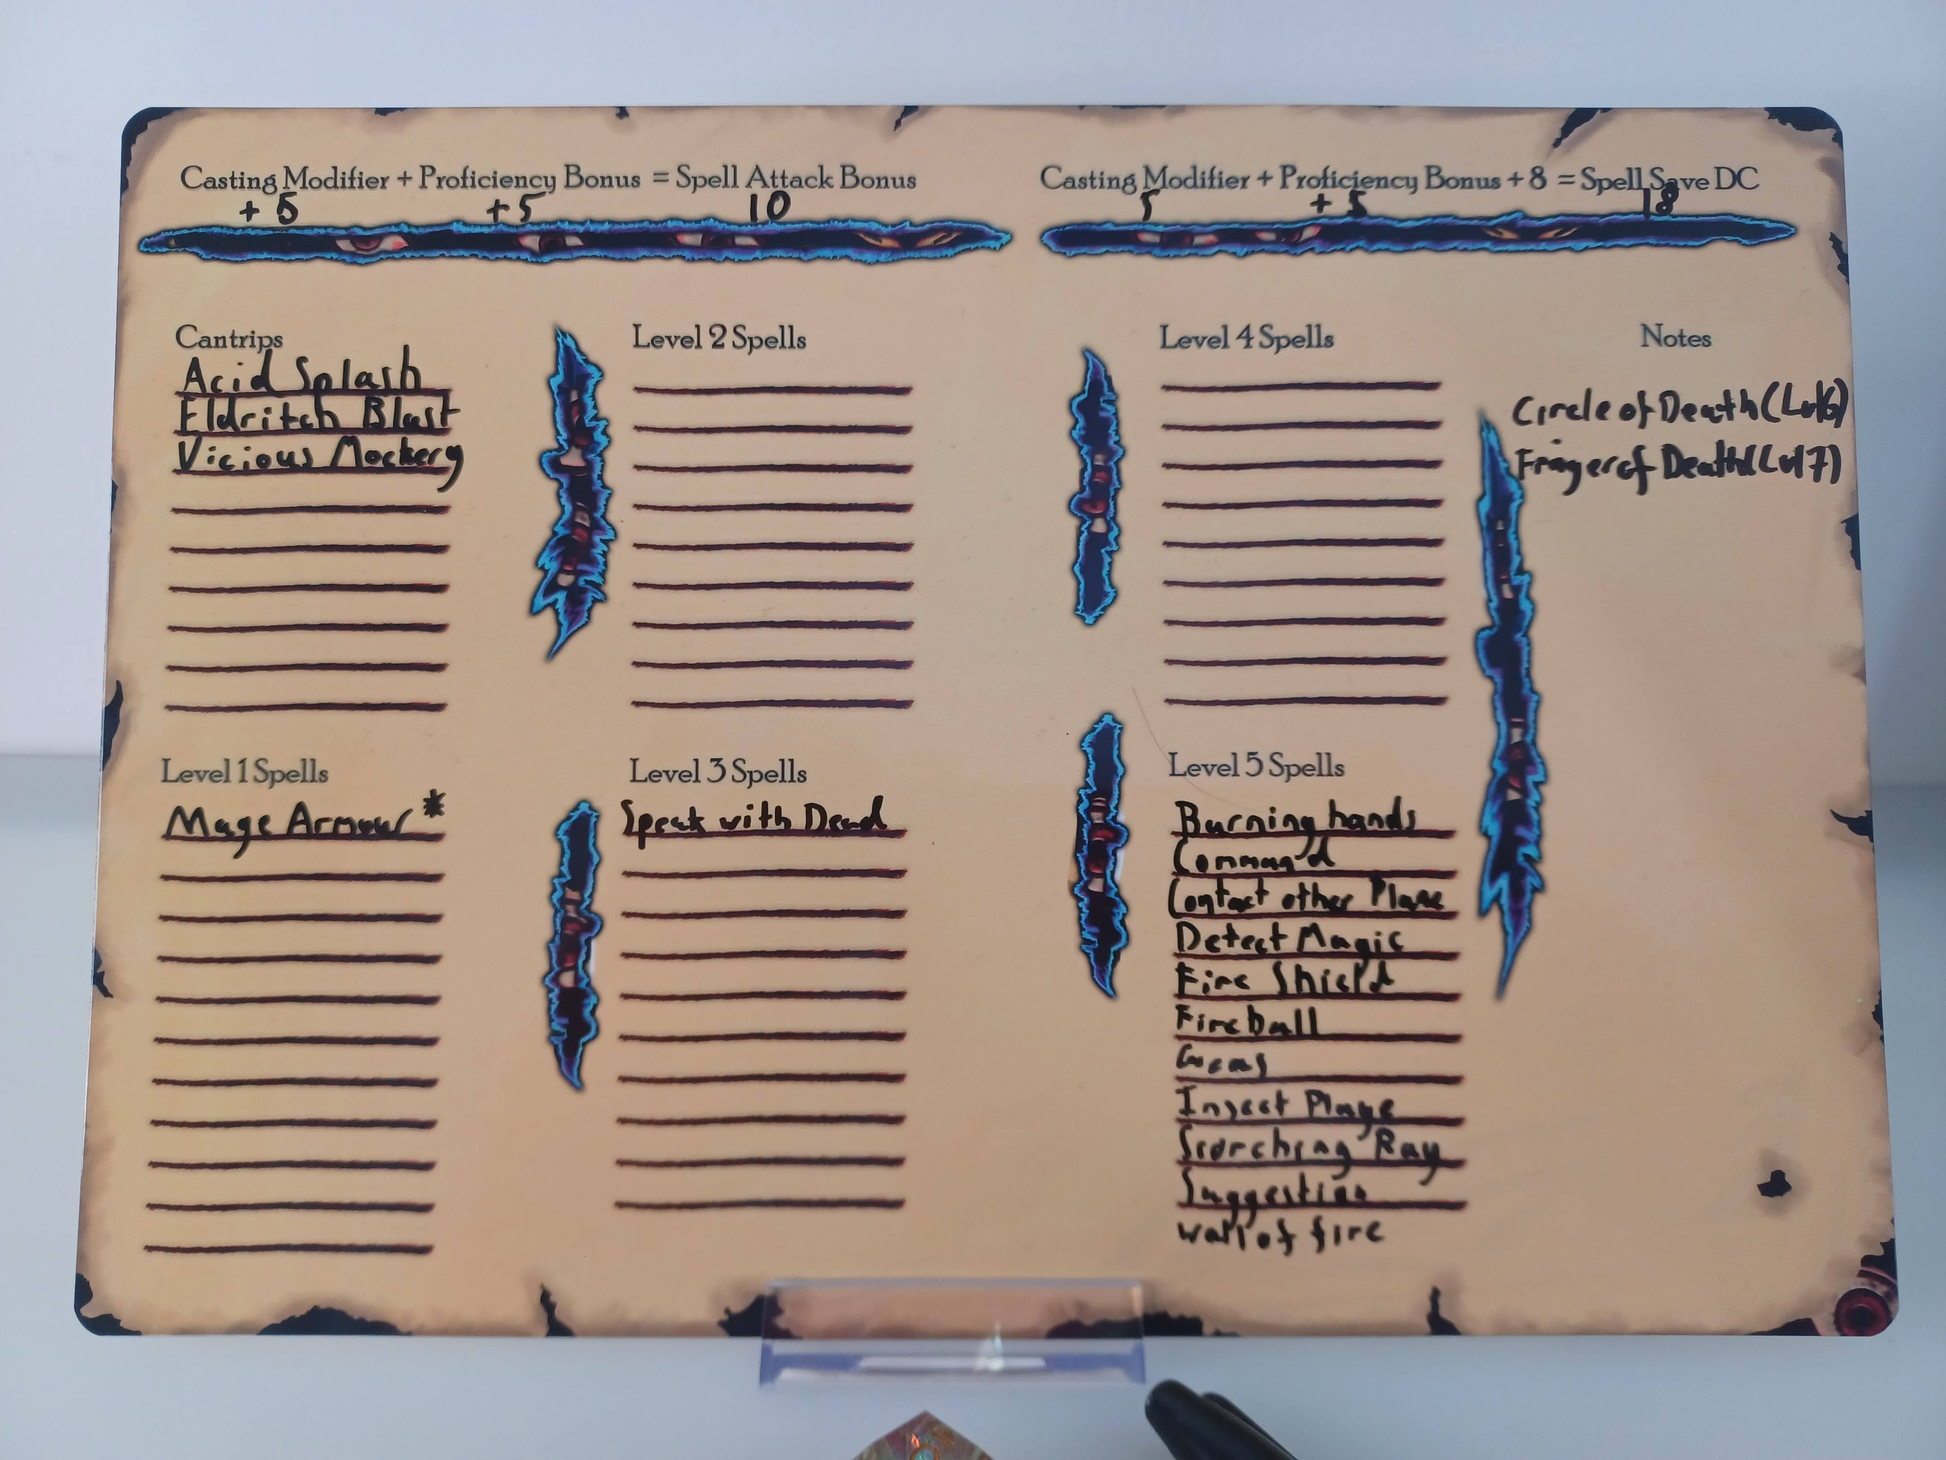 Casting Modifier + Proficiency Bonus = Spell Attack Bonus
+5 +5 10
Casting Modifier + Proficiency Bonus + 8 = Spell Save DC
5 +5 18
Cantrips
Acid Splash
Eldritch Blast
Vicious Mockery
Level 1 Spells
Mage Armour*
Level 2 Spells
Level 3 Spells
Speak with Dead
Level 4 Spells
Level 5 Spells
Burning hands
Command
Contact other Plane
Detect Magic
Fire Shield
Fireball
Geas
Insect Plague
Scorching Ray
Suggestion
wall of fire
Notes
Circle of Death (Lvl6)
Finger of Death (Lvl7)